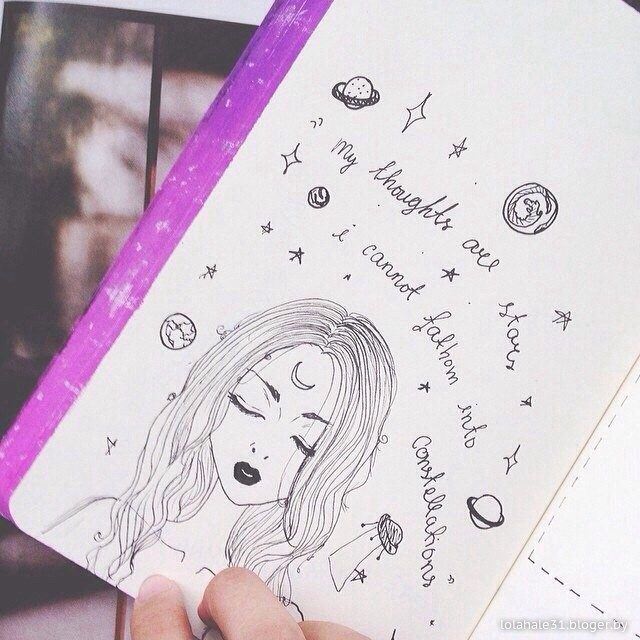 „ My thoughts are stars
i cannot fathom into
constellations “
lolahale31.bloger.by